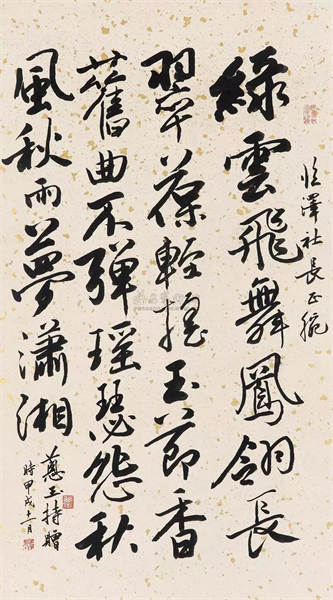 澤社長正腕
綠雲飛舞鳳翎長
翠葆輕搖玉節香
舊曲不彈瑤瑟怨秋
風秋雨夢瀟湘
蕙玉持贈
時甲戌月